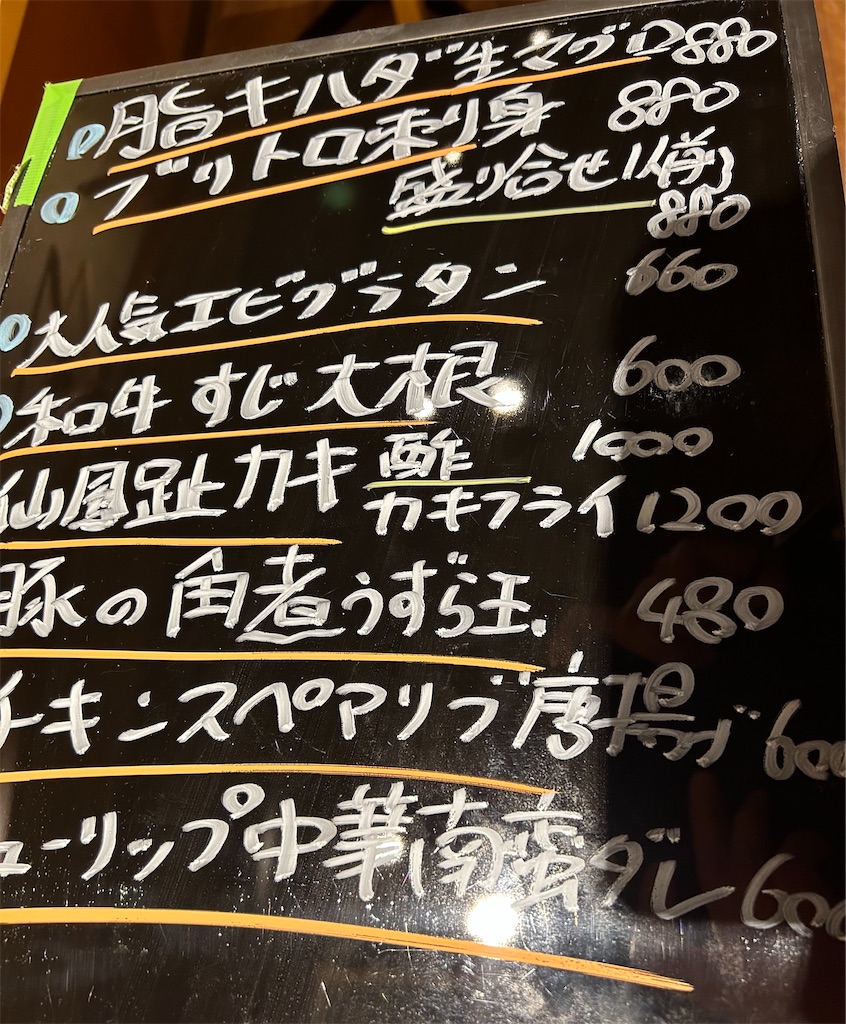 脂キハダ生マグロ880
ブリトロ刺身 880
盛り合せ1人前
880
大人気エビグラタン 660
和牛すじ大根 600
仙鳳趾カキ酢 1000
カキフライ 1200
豚の角煮うずら玉 480
チキンスペアリブ唐揚げ 600
ューリップ中華南蛮ダレ 600